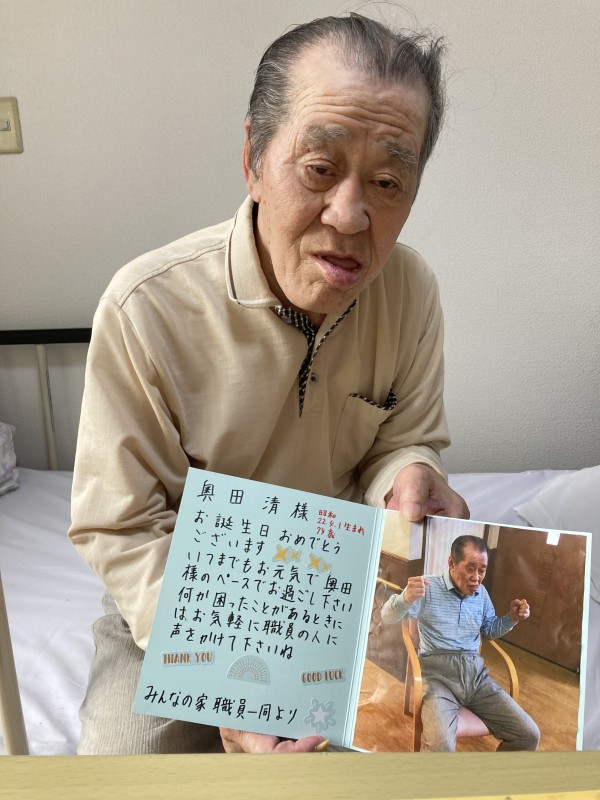 奥田 清 様
昭和
22.4.1生まれ
75歳
お誕生日 おめでとう
ございます
いつまでもお元気で 奥田
様のペースでお過ごし下さい
何か困ったことがあるときに
はお気軽に職員の人に
声をかけて下さいね
THANK YOU
GOOD LUCK
みんなの家 職員一同より